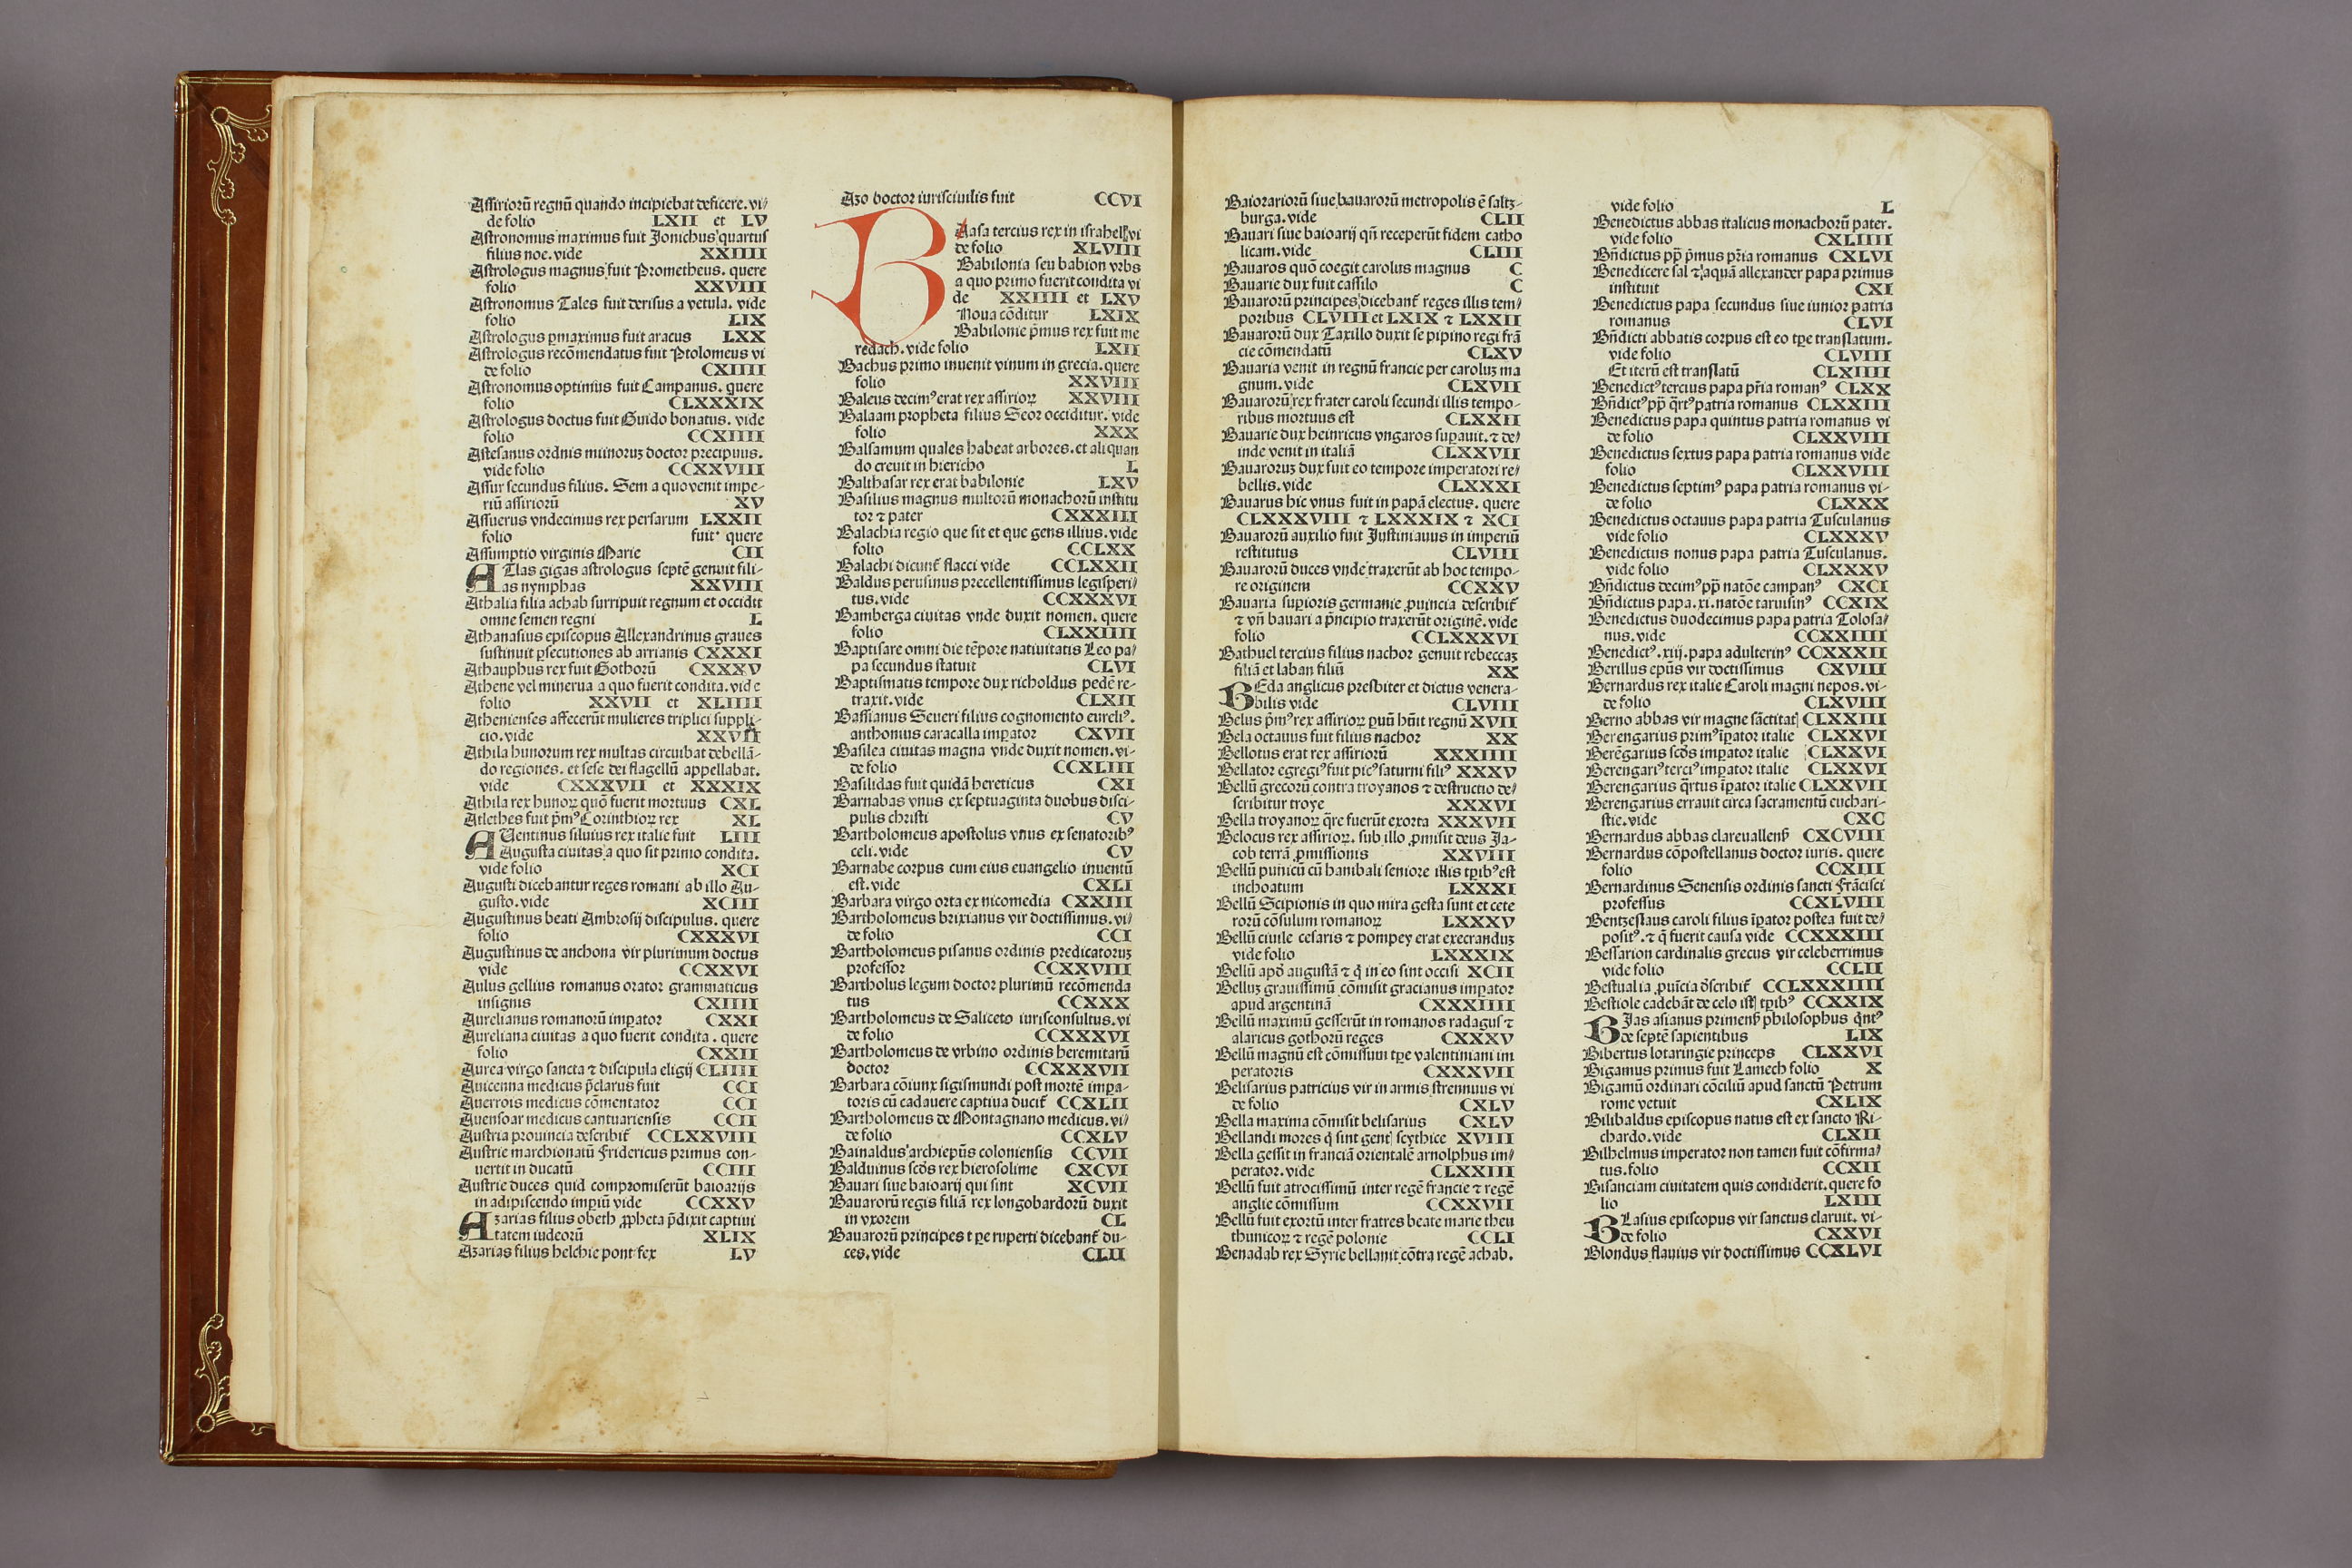 Assirioru̅ regnu̅ quando incipiebat deficere. vi⸗
de folio LXII et LV
Astronomus maximus fuit Jonichus quartus
filius noe. vide XXIIII
Astrologus magnus fuit Prometheus. quere
folio XXVIII
Astronomus Tales fuit derisus a vetula. vide
folio LIX
Astrologus ꝑmaximus fuit aracus LXX
Astrologus reco̅mendatus fuit Ptolomeus vi
de folio CXIIII
Astronomus optimus fuit Campanus. quere
folio CLXXXIX
Astrologus doctus fuit Guido bonatus. vide
folio CCXIIII
Astesanus ordnis mi̅noruꝫ doctor precipuus.
vide folio CCXXVIII
Assur secundus filius. Sem a quo venit impe-
riu̅ assirioru̅ XV
Assuerus vndecimus rex persarum LXXII
folio fuit. quere
Assumptio virginis Marie CII
ATlas gigas astrologus septe̅ genuit fili-
as nymphas XXVIII
Athalia filia achab surripuit regnum et occidit
omne semen regni L
Athanasius episcopus Allexandrinus graues
sustinuit ꝑsecutiones ab arrianis CXXXI
Athauphus rex fuit Gothoru̅ CXXXV
Athene vel minerua a quo fuerit condita. vide
folio XXVII et XLIIII
Athenienses affeceru̅t mulieres triplici suppli-
cio. vide XXVII
Athila hunorum rex multas circuibat debella̅-
do regiones. et sese dei flagellu̅ appellabat.
vide CXXXVII et XXXIX
Athila rex hunoꝝ quo̅ fuerit mortuus CXL
Atlethes fuit p̅mꝰ Corinthioꝝ rex XL
AUentinus siluius rex italie fuit LIII
Augusta ciuitas a quo sit primo condita.
vide folio XCI
Augusti dicebantur reges romani ab illo Au-
gusto. vide XCIII
Augustinus beati Ambrosij discipulus. quere
folio CXXXVI
Augustinus de anchona vir plurimum doctus
vide CCXXVI
Aulus gellius romanus orator grammaticus
insignis CXIIII
Aurelianus romanoru̅ impator CXXI
Aureliana ciuitas a quo fuerit condita. quere
folio CXXII
Aurea virgo sancta ⁊ discipula eligij CLIIII
Auicenna medicus p̅clarus fuit CCI
Auerrois medicus co̅mentator CCI
Auensoar medicus cantuariensis CCII
Austria prouincia describit̅ CCLXXVIII
Austrie marchionatu̅ Fridericus primus con-
uertit in ducatu̅ CCIII
Austrie duces quid compromiseru̅t baioarijs
in adipiscendo impiu̅ vide CCXXV
Azarias filius obeth ꝓpheta p̅dixit captiui
tatem iudeoru̅ XLIX
Azarias filius helchie pontifex LV
Azo doctor iurisciuilis fuit CCVI
BAasa tercius rex in israhell vi
de folio XLVIII
Babilonia seu babion vrbs
a quo primo fuerit condita vi
de XXIIII et LXV
Noua co̅ditur LXIX
Babilonie p̅mus rex fuit me
redach. vide folio LXII
Bachus primo inuenit vinum in grecia. quere
folio XXVIII
Baleus decimꝰ erat rex assirioꝝ XXVIII
Balaam propheta filius Seor occiditur. vide
folio XXX
Balsamum quales habeat arbores. et aliquan
do creuit in hiericho L
Balthasar rex erat babilonie LXV
Basilius magnus multoru̅ monachoru̅ institu
tor ⁊ pater CXXXIII
Balachia regio que sit et que gens illius. vide
folio CCLXX
Balachi dicunt̅ flacci vide CCLXXII
Baldus perusinus precellentissimus legisperi⸗
tus. vide CCXXXVI
Bamberga ciuitas vnde duxit nomen. quere
folio CLXXIIII
Baptisare omni die te̅pore natiuitatis Leo pa⸗
pa secundus statuit CLVI
Baptismatis tempore dux richoldus pede̅ re-
traxit. vide CLXII
Bassianus Seueri filius cognomento eureliꝰ.
anthonius caracalla impator CXVII
Basilea ciuitas magna vnde duxit nomen. vi-
de folio CCXLIII
Basilidas fuit quida̅ hereticus CXI
Barnabas vnus ex septuaginta duobus disci-
pulis christi CV
Bartholomeus apostolus vnus ex senatoribꝰ
celi. vide CV
Barnabe corpus cum eius euangelio inuentu̅
est. vide CXLI
Barbara virgo orta ex nicomedia CXXIII
Bartholomeus brixianus vir doctissimus. vi⸗
de folio CCI
Bartholomeus pisanus ordinis predicatoruꝫ
professor CCXXVIII
Bartholus legum doctor plurimu̅ reco̅menda
tus CCXXX
Bartholomeus de Saliceto iurisconsultus. vi
de folio CCXXXVI
Bartholomeus de vrbino ordinis heremitaru̅
doctor CCXXXVII
Barbara co̅iunx sigismundi post morte̅ impa-
toris cu̅ cadauere captiua ducit̅ CCXLII
Bartholomeus de Montagnano medicus. vi⸗
de folio CCXLV
Bainaldus archiepu̅s coloniensis CCVII
Balduinus sco̅s rex hierosolime CXCVI
Bauari siue baioarij qui sint XCVII
Bauaroru̅ regis filia̅ rex longobardoru̅ duxit
in vxorem CL
Bauaroru̅ principes tꝑe ruperti dicebant̅ du-
ces. vide CLII
Baiorarioru̅ siue bauaroru̅ metropolis e̅ saltz-
burga. vide CLII
Bauari siue baioarij qn̅ receperu̅t fidem catho
licam. vide CLIII
Bauaros quo̅ coegit carolus magnus C
Bauarie dux fuit cassilo C
Bauaroru̅ principes dicebant̅ reges illis tem⸗
poribus CLVIII et LXIX ⁊ LXXII
Bauaroru̅ dux Taxillo duxit se pipino regi fra̅
cie co̅mendatu̅ CLXV
Bauaria venit in regnu̅ francie per caroluꝫ ma
gnum. vide CLXVII
Bauaroru̅ rex frater caroli secundi illis tempo-
ribus mortuus est CLXXII
Bauarie dux heinricus vngaros suꝑauit. ⁊ de⸗
inde venit in italia̅ CLXXVII
Bauaroruꝫ dux fuit eo tempore imperatori re⸗
bellis. vide CLXXXI
Bauarus hic vnus fuit in papa̅ electus. quere
CLXXXVIII ⁊ LXXXIX ⁊ XCI
Bauaroru̅ auxilio fuit Justinianus in imperiu̅
restitutus CLVIII
Bauaroru̅ duces vnde traxeru̅t ab hoc tempo-
re originem CCXXV
Bauaria suꝑioris germanie ꝓuincia describit̅
⁊ vn̅ bauari a p̅ncipio traxeru̅t origine̅. vide
folio CCLXXXVI
Bathuel tercius filius nachor genuit rebeccaꝫ
filia̅ et laban filiu̅ XX
BEda anglicus presbiter et dictus venera-
bilis vide CLVIII
Belus p̅mꝰ rex assirioꝝ ꝑuu̅ hu̅it regnu̅ XVII
Bela octauus fuit filius nachor XX
Bellotus erat rex assirioru̅ XXXIIII
Bellator egregiꝰ fuit picꝰ saturni filiꝰ XXXV
Bellu̅ grecoru̅ contra troyanos ⁊ destructio de⸗
scribitur troye XXXVI
Bella troyanoꝝ q̅re fueru̅t exorta XXXVII
Belocus rex assirioꝝ. sub illo ꝓmisit deus Ja-
cob terra̅ ꝓmissionis XXVIII
Bellu̅ punicu̅ cu̅ hanibali seniore illis tꝑibꝰ est
inchoatum LXXXI
Bellu̅ Scipionis in quo mira gesta sunt et cete
roru̅ co̅sulum romanoꝝ LXXXV
Bellu̅ ciuile cesaris ⁊ pompey erat execranduꝫ
vide folio LXXXIX
Bellu̅ apd̅ augusta̅ ⁊ q̅ in eo sint occisi XCII
Belluꝫ grauissimu̅ co̅misit gracianus impator
apud argentina̅ CXXXIIII
Bellu̅ maximu̅ gesseru̅t in romanos radagus ⁊
alaricus gothoru̅ reges CXXXV
Bellu̅ magnu̅ est co̅missum tꝑe valentiniani im
peratoris CXXXVII
Belisarius patricius vir in armis strennuus vi
de folio CXLV
Bella maxima co̅misit belisarius CXLV
Bellandi mores q̅ sint gent̅ scythice XVIII
Bella gessit in francia̅ orientale̅ arnolphus im⸗
perator. vide CLXXIII
Bellu̅ fuit atrocissimu̅ inter rege̅ francie ⁊ rege̅
anglie co̅missum CCXXVII
Bellu̅ fuit exortu̅ inter fratres beate marie theu
thunicoꝝ ⁊ rege̅ polonie CCLI
Benadab rex Syrie bellauit co̅tra rege̅ achab.
vide folio L
Benedictus abbas italicus monachoru̅ pater.
vide folio CXLIIII
Bn̅dictus pp̅ p̅mus pr̅ia romanus CXLVI
Benedicere sal ⁊ aqua̅ allexander papa primus
instituit CXI
Benedictus papa secundus siue iunior patria
romanus CLVI
Bn̅dicti abbatis corpus est eo tꝑe translatum.
vide folio CLVIII
Et iteru̅ est translatu̅ CLXIIII
Benedictꝰ tercius papa pr̅ia romanꝰ CLXX
Bn̅dictꝰ pp̅ q̅rtꝰ patria romanus CLXXIII
Benedictus papa quintus patria romanus vi
de folio CLXXVIII
Benedictus sextus papa patria romanus vide
folio CLXXVIII
Benedictus septimꝰ papa patria romanus vi-
de folio CLXXX
Benedictus octauus papa patria Tusculanus
vide folio CLXXXV
Benedictus nonus papa patria Tusculanus.
vide folio CLXXXV
Bn̅dictus decimꝰ pp̅ nato̅e campanꝰ CXCI
Bn̅dictus papa. xi. nato̅e taruisinꝰ CCXIX
Benedictus duodecimus papa patria Tolosa⸗
nus. vide CCXXIIII
Benedictꝰ. xiij. papa adulterinꝰ CCXXXII
Berillus epu̅s vir doctissimus CXVIII
Bernardus rex italie Caroli magni nepos. vi-
de folio CLXVIII
Berno abbas vir magne sa̅ctitat̅ CLXXIII
Berengarius primꝰ ip̅ator italie CLXXVI
Bere̅garius sco̅s impator italie CLXXVI
Berengariꝰ terciꝰ impator italie CLXXVI
Berengarius q̅rtus ip̅ator italie CLXXVII
Berengarius errauit circa sacramentu̅ euchari-
stie. vide CXC
Bernardus abbas clareuallens̅ CXCVIII
Bernardus co̅postellanus doctor iuris. quere
folio CCXIII
Bernardinus Senensis ordinis sancti Fra̅cisci
professus CCXLVIII
Bentzeslaus caroli filius ip̅ator postea fuit de⸗
positꝰ. ⁊ q̅ fuerit causa vide CCXXXIII
Bessarion cardinalis grecus vir celeberrimus
vide folio CCLII
Bestualia ꝓui̅cia d̅scribit̅ CCLXXXIIII
Bestiole cadeba̅t de celo ist̅ tꝑibꝰ CCXXIX
BJas asianus primens̅ philosophus q̅ntꝰ
de septe̅ sapientibus LIX
Bibertus lotaringie princeps CLXXVI
Bigamus primus fuit Lamech folio X
Bigamu̅ ordinari co̅ciliu̅ apud sanctu̅ Petrum
rome vetuit CXLIX
Bilibaldus episcopus natus est ex sancto Ri-
chardo. vide CLXII
Bilhelmus imperator non tamen fuit co̅firma⸗
tus. folio CCXII
Bisanciam ciuitatem quis condiderit. quere fo
lio LXIII
BLasius episcopus vir sanctus claruit. vi-
de folio CXXVI
Blondus flauius vir doctissimus CCXLVI